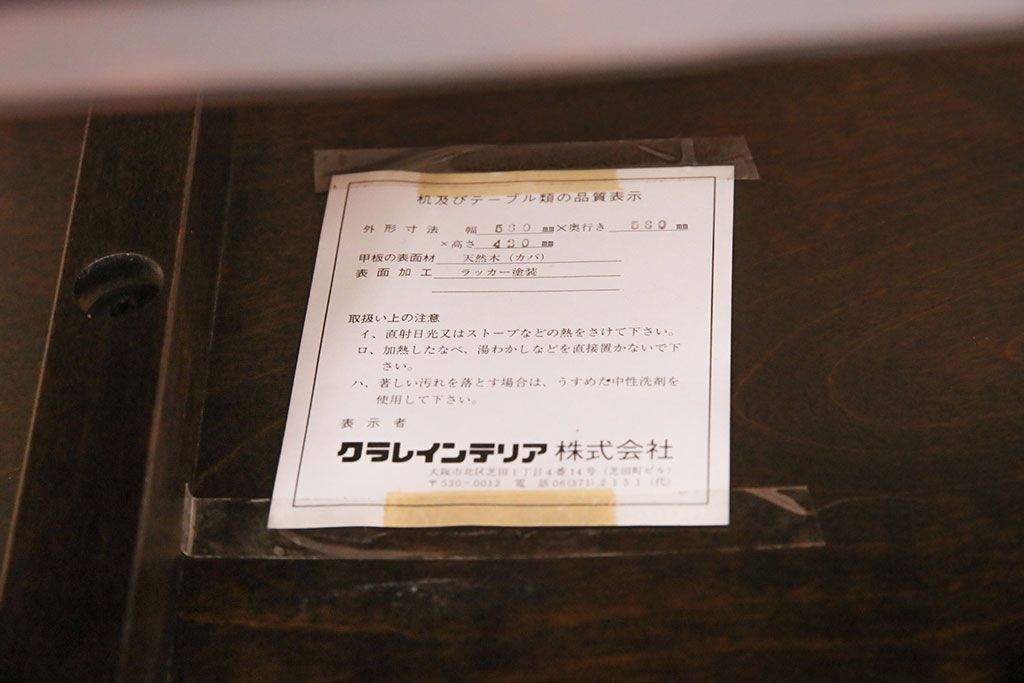 机及びテーブル類の品質表示
外形寸法 幅 580 mm×奥行き 580 mm
×高さ 420 mm
甲板の表面材 天然木（カバ）
表面加工 ラッカー塗装
取扱い上の注意
イ、直射日光又はストーブなどの熱をさけて下さい。
ロ、加熱したなべ、湯わかしなどを直接置かないで下
さい。
ハ、著しい汚れを落とす場合は、うすめた中性洗剤を
使用して下さい。
表示者
クラレインテリア株式会社
大阪市北区芝田1丁目4番14号（芝田町ビル）
〒530-0012 電話06(371)2151（代）